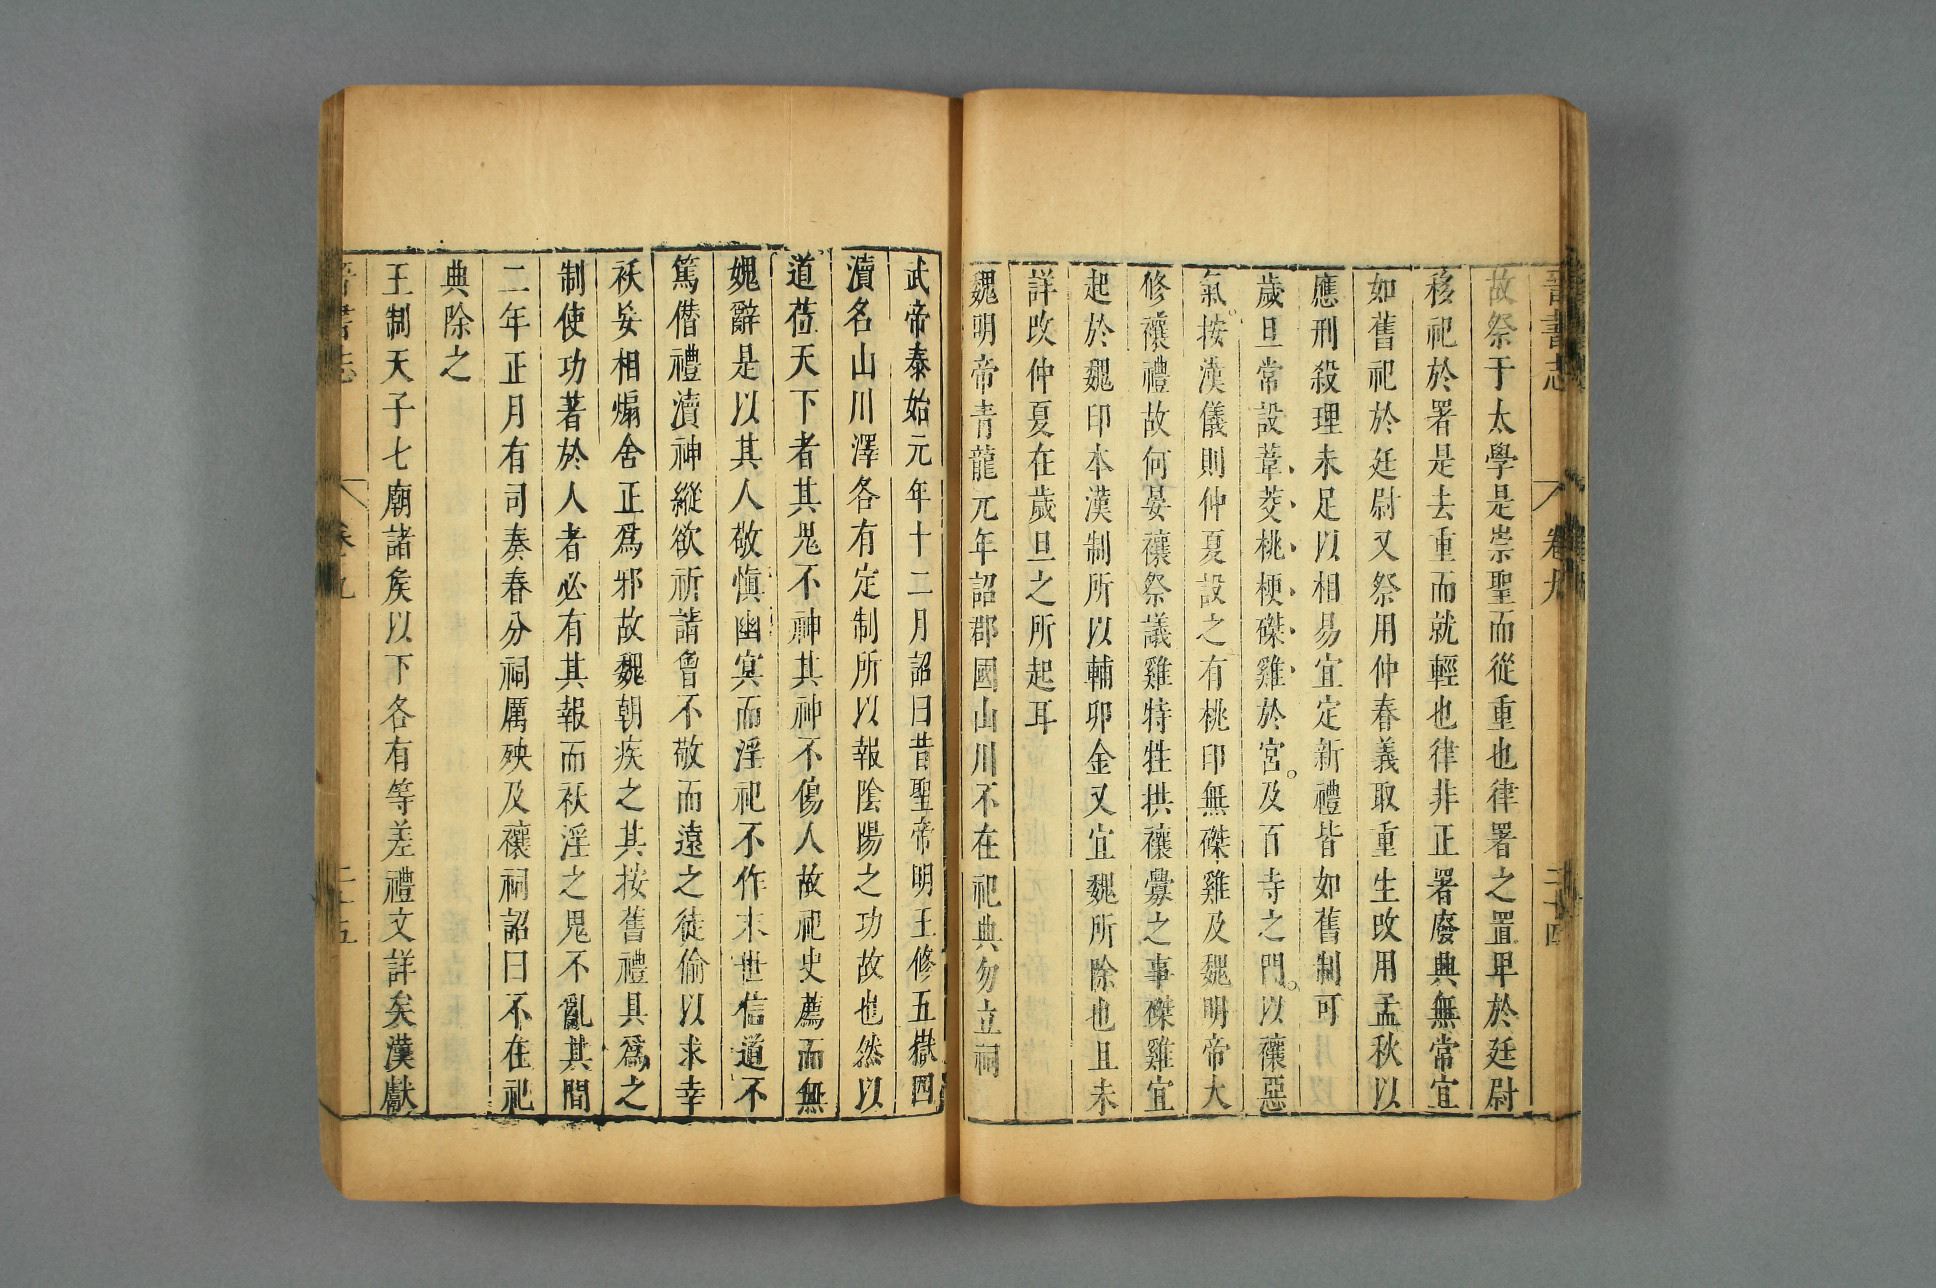 晉書志 卷九 二十四
故祭于太學是崇聖而從重也律署之置卑於廷尉
移祀於署是去重而就輕也律非正署廢典無常宜
如舊祀於廷尉又祭用仲春義取重生改用孟秋以
應刑殺理未足以相易宜定新禮皆如舊制可
歲旦常設葦茭桃梗磔雞於宮及百寺之門以禳惡
氣按漢儀則仲夏設之有桃印無磔雞及魏明帝大
修禳禮故何晏禳祭議雞特牲拱禳釁之事磔雞宜
起於魏印本漢制所以輔卯金又宜魏所除也且未
詳改仲夏在歲旦之所起耳
魏明帝青龍元年詔郡國山川不在祀典勿立祠
武帝泰始元年十二月詔曰昔聖帝明王修五嶽四
瀆名山川澤各有定制所以報陰陽之功故也然以
道莅天下者其鬼不神其神不傷人故祀史薦而無
媿辭是以其人敬慎幽冥而淫祀不作末世信道不
篤僭禮瀆神縱欲祈請魯不敬而遠之徒偷以求幸
祅妄相煽舍正爲邪故魏朝疾之其按舊禮具爲之
制使功著於人者必有其報而祅淫之鬼不亂其間
二年正月有司奏春分祠厲殃及禳祠詔曰不在祀
典除之
王制天子七廟諸矦以下各有等差禮文詳矣漢獻
晉書志 卷九 二十五